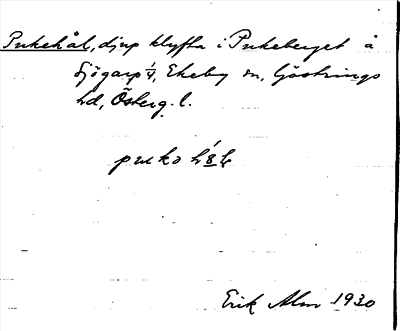 Pukehål, djup klyfta i Pukeberget å
Sjögarp 1/4, Ekeby sn, Göstrings
hd, Österg. l.
puko h
Erik Alm 1930